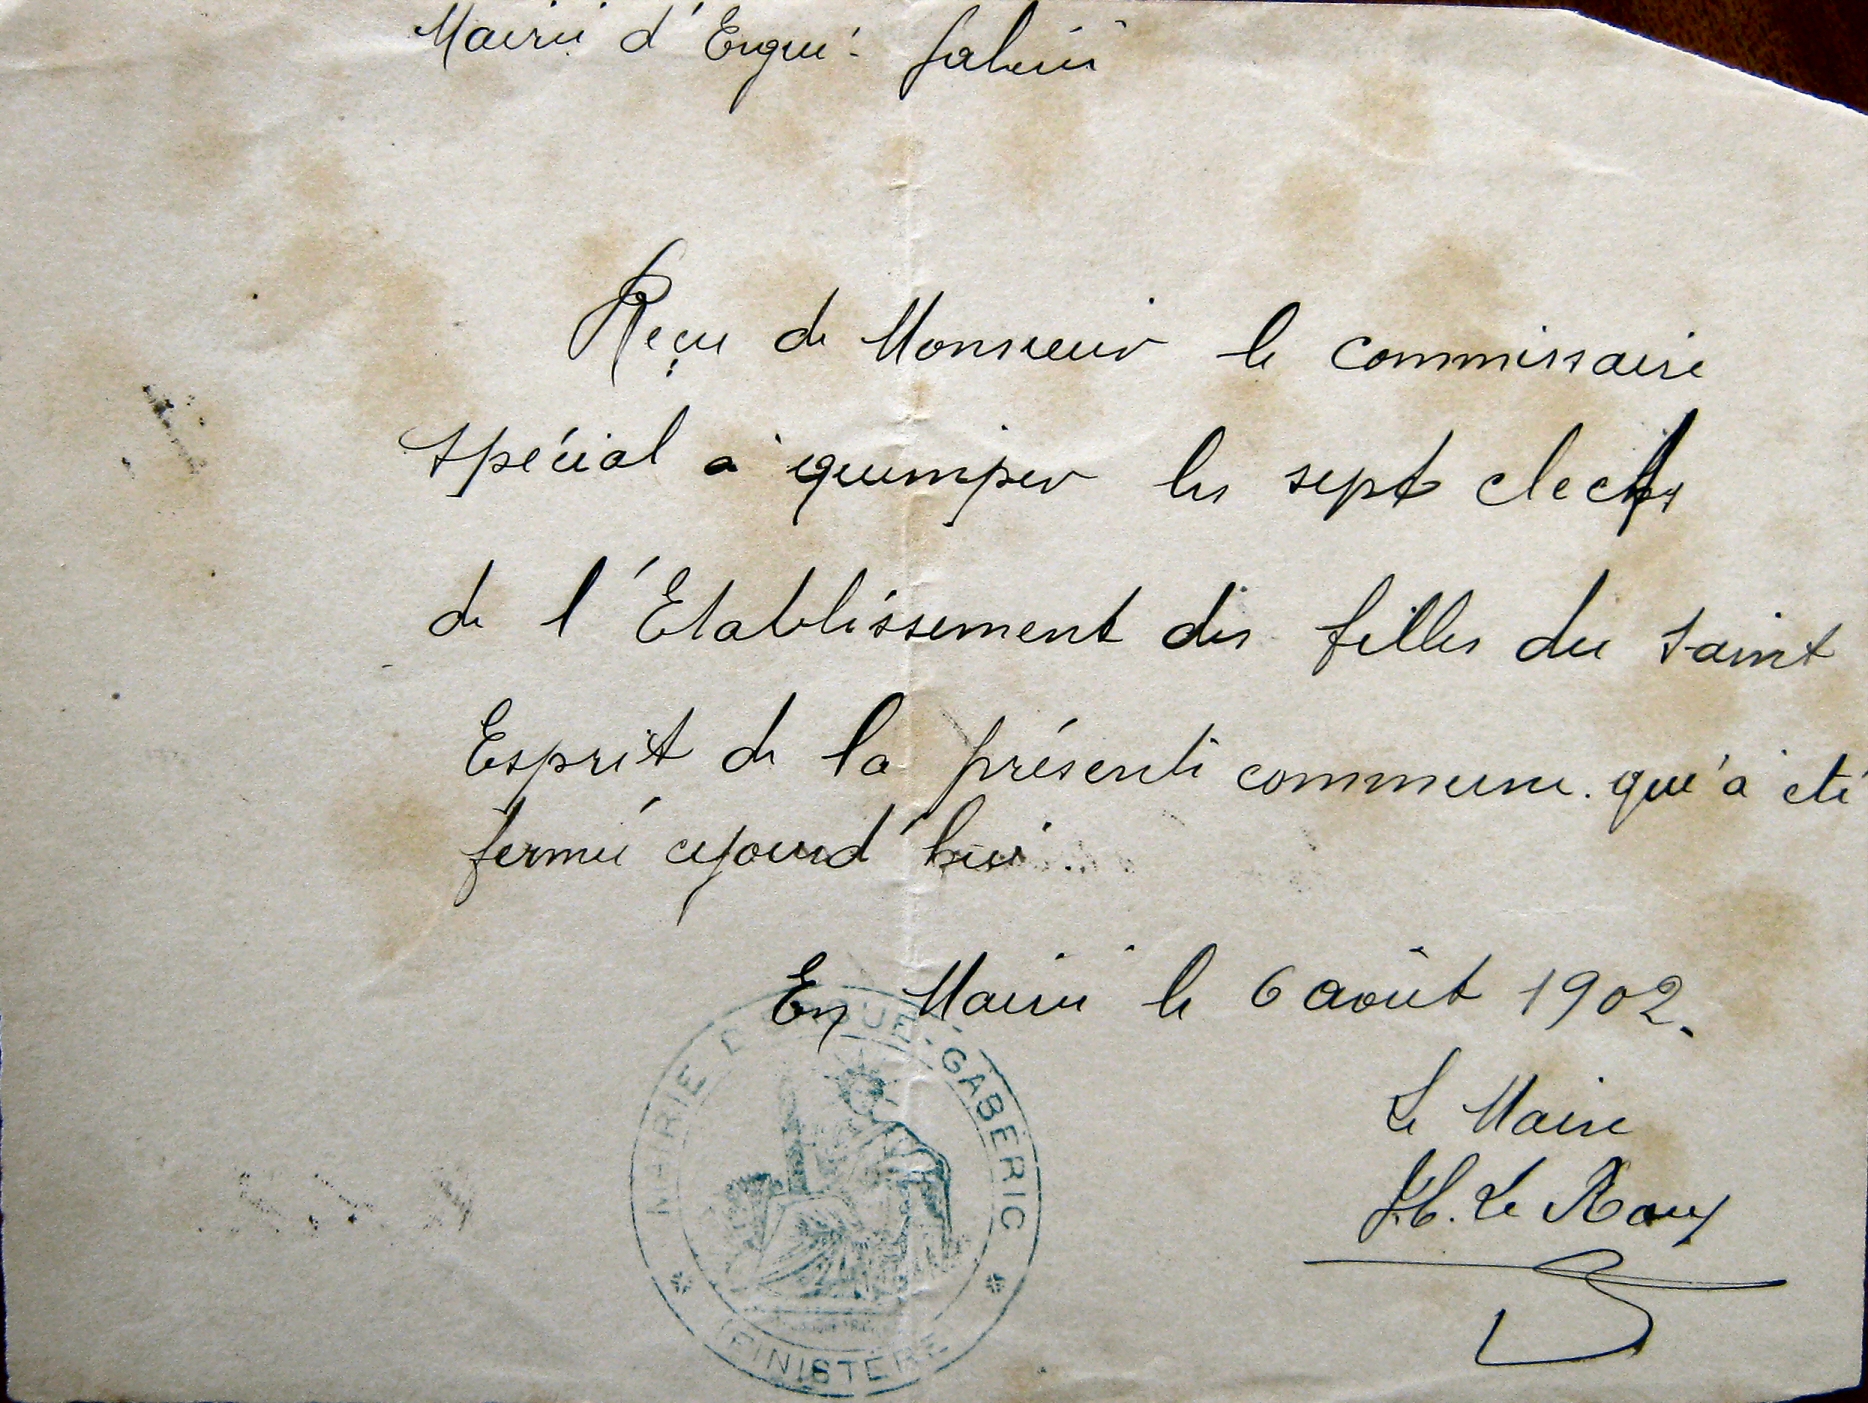 Mairie d'Ergué-Gabéric
Reçu de Monsieur le commissaire
spécial à quimper les sept clefs
de l'Etablissement des filles du saint
Esprit de la présente commune. qui a été
fermé ajourd'hui.
En Mairie le 6 août 1902.
Le Maire
Le Roux
MAIRIE D'ERGUÉ-GABERIC
FINISTÈRE